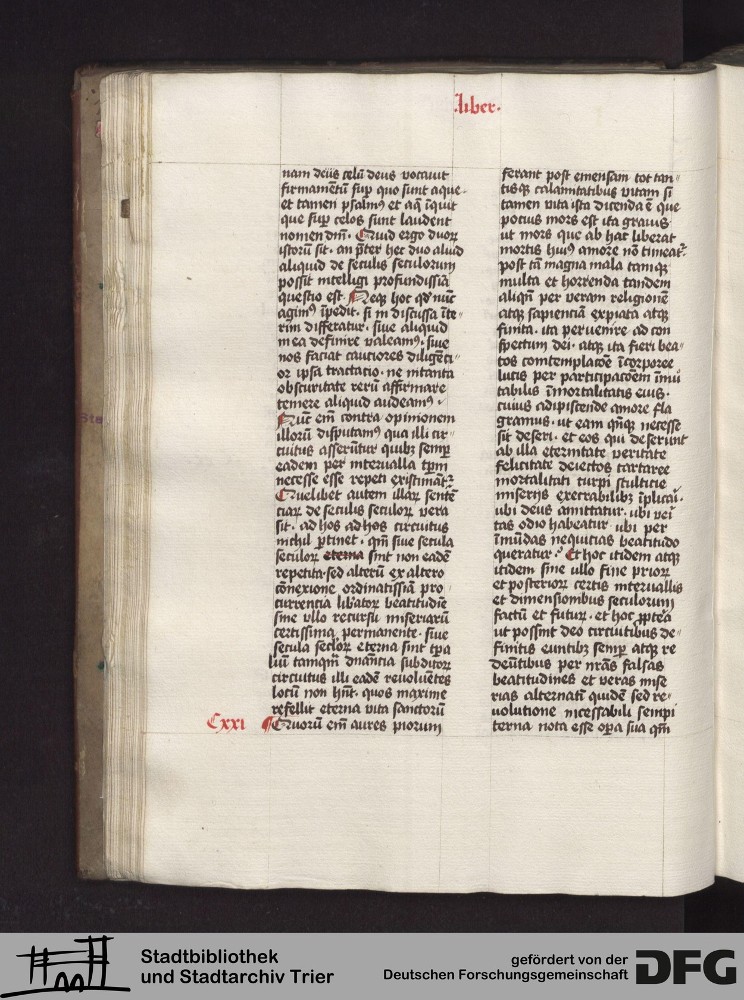 Liber.
nam deus celū deus vocauit
firmamētū sup quo sunt aque.
et tamen psalmꝰ et aq̄ īquit
que sup celos sunt laudent
nomen dm̄. Quid ergo duoꝝ
istorū sit. an p̄ter hec duo aliud
aliquid de seculis seculorum
possit intelligi profundissīa
questio est. Neqꝫ hoc qd nūc
agimꝰ īpedit. si indiscussa īte-
rim differatur. siue aliquid
in ea definire valeamꝰ. siue
nos faciat cautiores diligēti-
or ipsa tractatio. ne in tanta
obscuritate rerū affirmare
temere aliquid audeamꝰ.
Nūc em̄ contra opinionem
illorū disputamꝰ qua illi cir-
cuitus asserūtur quibꝫ semp
eadem per interualla tp̄m
necesse esse repeti existimāt̄.
Quelibet autem illaꝝ sentē
ciaꝝ de seculis seculoꝝ vera
sit. ad hos ad hos circuitus
nichil ꝑtinet. qm̄ siue secula
seculoꝝ eterna sint non eadē
repetita. sed alterū ex altero
cōnexione ordinatissīa pro
currencia libatoꝝ beatitudīe
sine vllo recursu miseriarū
certissima permanente. siue
secula secloꝝ eterna sint tp̄a
liū tamqm̄ dnāncia subditoꝝ
circuitus illi eadē reuoluētes
locū non hn̄t. quos maxime
refellit eterna vita sanctorū
Cxxi ¶Quorū em̄ aures piorum
ferant post emensam tot tan-
tisqꝫ calamitatibus vitam si
tamen vita ista dicenda ē que
pocius mors est ita grauis
ut mors que ab hac liberat
mortis huiꝰ amore nō timeat̄.
post tā magna mala tamqꝫ
multa et horrenda tandem
aliqn̄ per veram religionē
atqꝫ sapienciā expiata atqꝫ
finita. ita peruenire ad con
spectum dei. atqꝫ ita fieri bea-
tos contemplacōe īcorporee
lucis per participacōem īmu
tabilis īmortalitatis eius.
cuius adipiscende amore fla
gramus. ut eam qn̄qꝫ necesse
sit deseri. et eos qui deserunt
ab illa eternitate veritate
felicitate deiectos tartaree
mortalitati turpi stulticie
miserijs execrabilibꝫ īplicai.
ubi deus amittatur. ubi vei
tas odio habeatur ubi per
īmūdas nequitias beatitudo
queratur. Et hoc itidem atqꝫ
itidem sine ullo fine prioꝝ
et posterioꝝ certis interuallis
et dimensionibus seculorum
factū et futuꝝ. et hoc ꝓpterea
ut possint deo circuitibus de-
finitis euntibꝫ semp atqꝫ re
deūtibus per nr̄as falsas
beatitudines et veras mise
rias alternati quidē sed re-
uolutione incessabili sempi
terna nota esse oꝑa sua qm̄
Stadtbibliothek
und Stadtarchiv Trier
gefördert von der
Deutschen Forschungsgemeinschaft
DFG